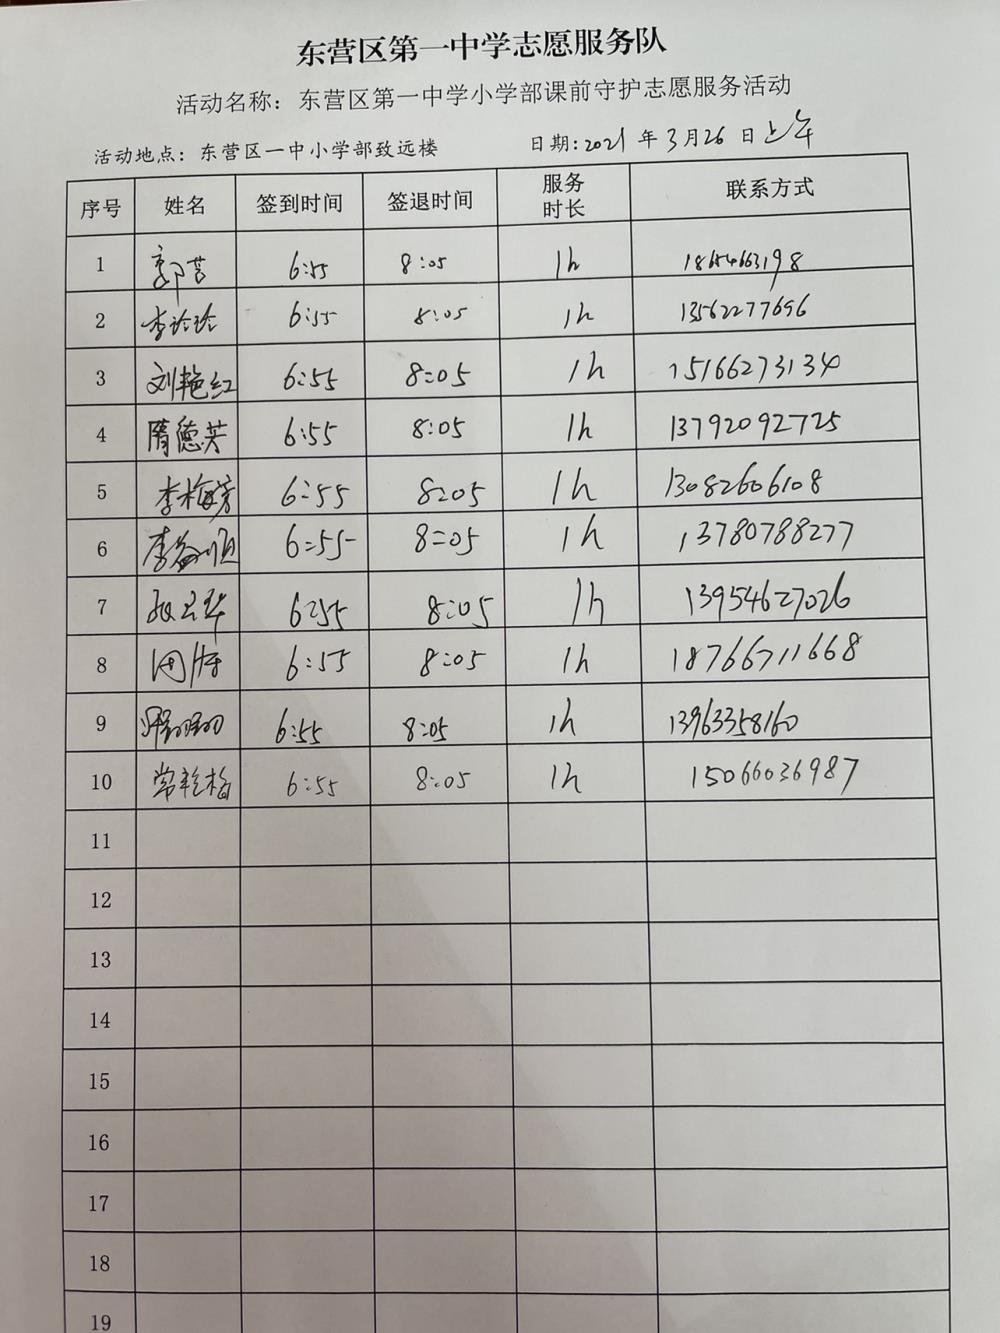 东营区第一中学志愿服务队
活动名称：东营区第一中学小学部课前守护志愿服务活动
活动地点：东营区一中小学部致远楼 日期：2021年3月26日上午
序号 姓名 签到时间 签退时间 服务时长 联系方式
1 郭莹 6:55 8:05 1h
2 李玲玲 6:55 8:05 1h 13562277696
3 刘艳红 6:55 8:05 1h 15166273134
4 隋德芳 6:55 8:05 1h 13792092725
5 李梅芳 6:55 8:05 1h 13082606108
6 6:55 8:05 1h 13780788277
7 6:55 8:05 1h 13954627026
8 6:55 8:05 1h 18766711668
9 6:55 8:05 1h 13963358160
10 常乾梅 6:55 8:05 1h 15066036987
11
12
13
14
15
16
17
18
19